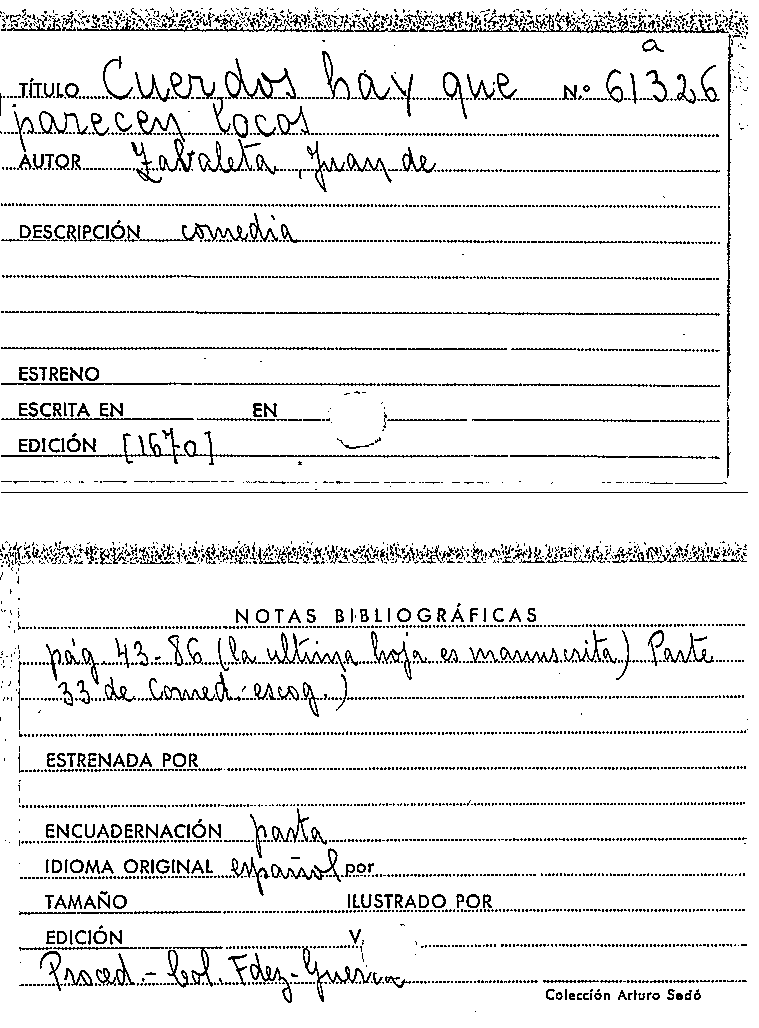 a
TÍTULO Cuerdos hay que N.º 61326
parecen locos
AUTOR Zabaleta, Juan de
DESCRIPCIÓN comedia
ESTRENO
ESCRITA EN EN
EDICIÓN [1670]
NOTAS BIBLIOGRÁFICAS
pág. 43-86 (la ultima hoja es manuscrita) Parte
33 de Comed. escog.)
ESTRENADA POR
ENCUADERNACIÓN pasta
IDIOMA ORIGINAL español por
TAMAÑO ILUSTRADO POR
EDICIÓN V
Proced.- Col. Fdez-Guerra
Colección Arturo Sedó